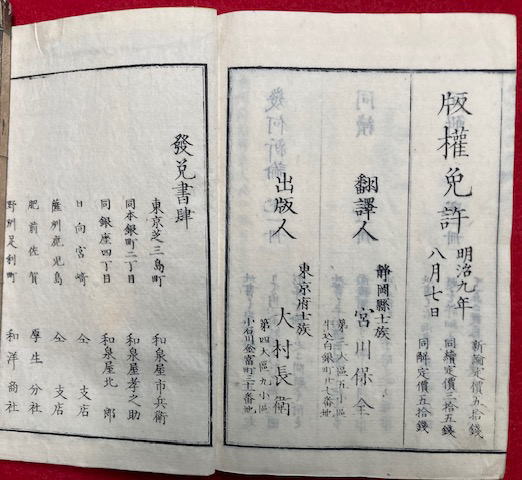 版權免許
明治九年
八月七日
新論定價五拾錢
同續定價三拾五錢
同解定價五拾錢
翻譯人
靜岡縣士族
宮川保全
第三大區五小區
牛込白銀町廿七番地
出版人
東京府士族
大村長衛
第四大區九小區
小石川金富町三十二番地
發兌書肆
東京芝三島町 和泉屋市兵衛
同本銀町二丁目 和泉屋孝之助
同銀座四丁目
日向宮崎 仝支店
薩州鹿児島 仝支店
肥前佐賀 厚生分社
野州足利町 和洋商社